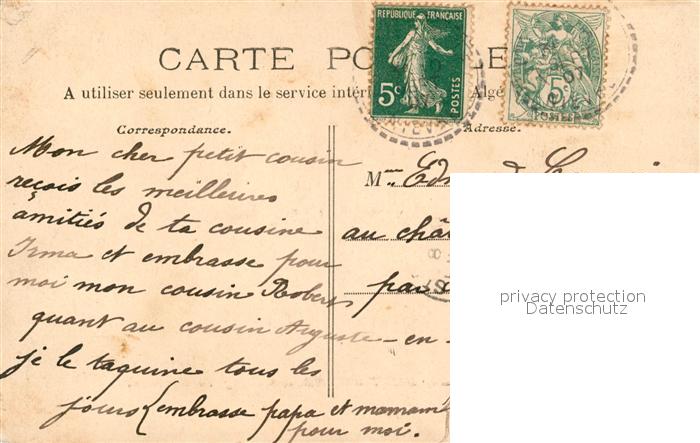 CARTE PO LE
A utiliser seulement dans le service intéri Algé
REPUBLIQUE FRANÇAISE
5c
POSTES
5c
POSTES
Correspondance.
Adresse.
Mon cher petit cousin
reçois les meilleures
amitiés de ta cousine
Irma et embrasse pour
moi mon cousin Robert
quant au cousin Auguste — en -
je le taquine tous les
jours (embrasse papa et maman
pour moi.
M
au châ
par
privacy protection
Datenschutz